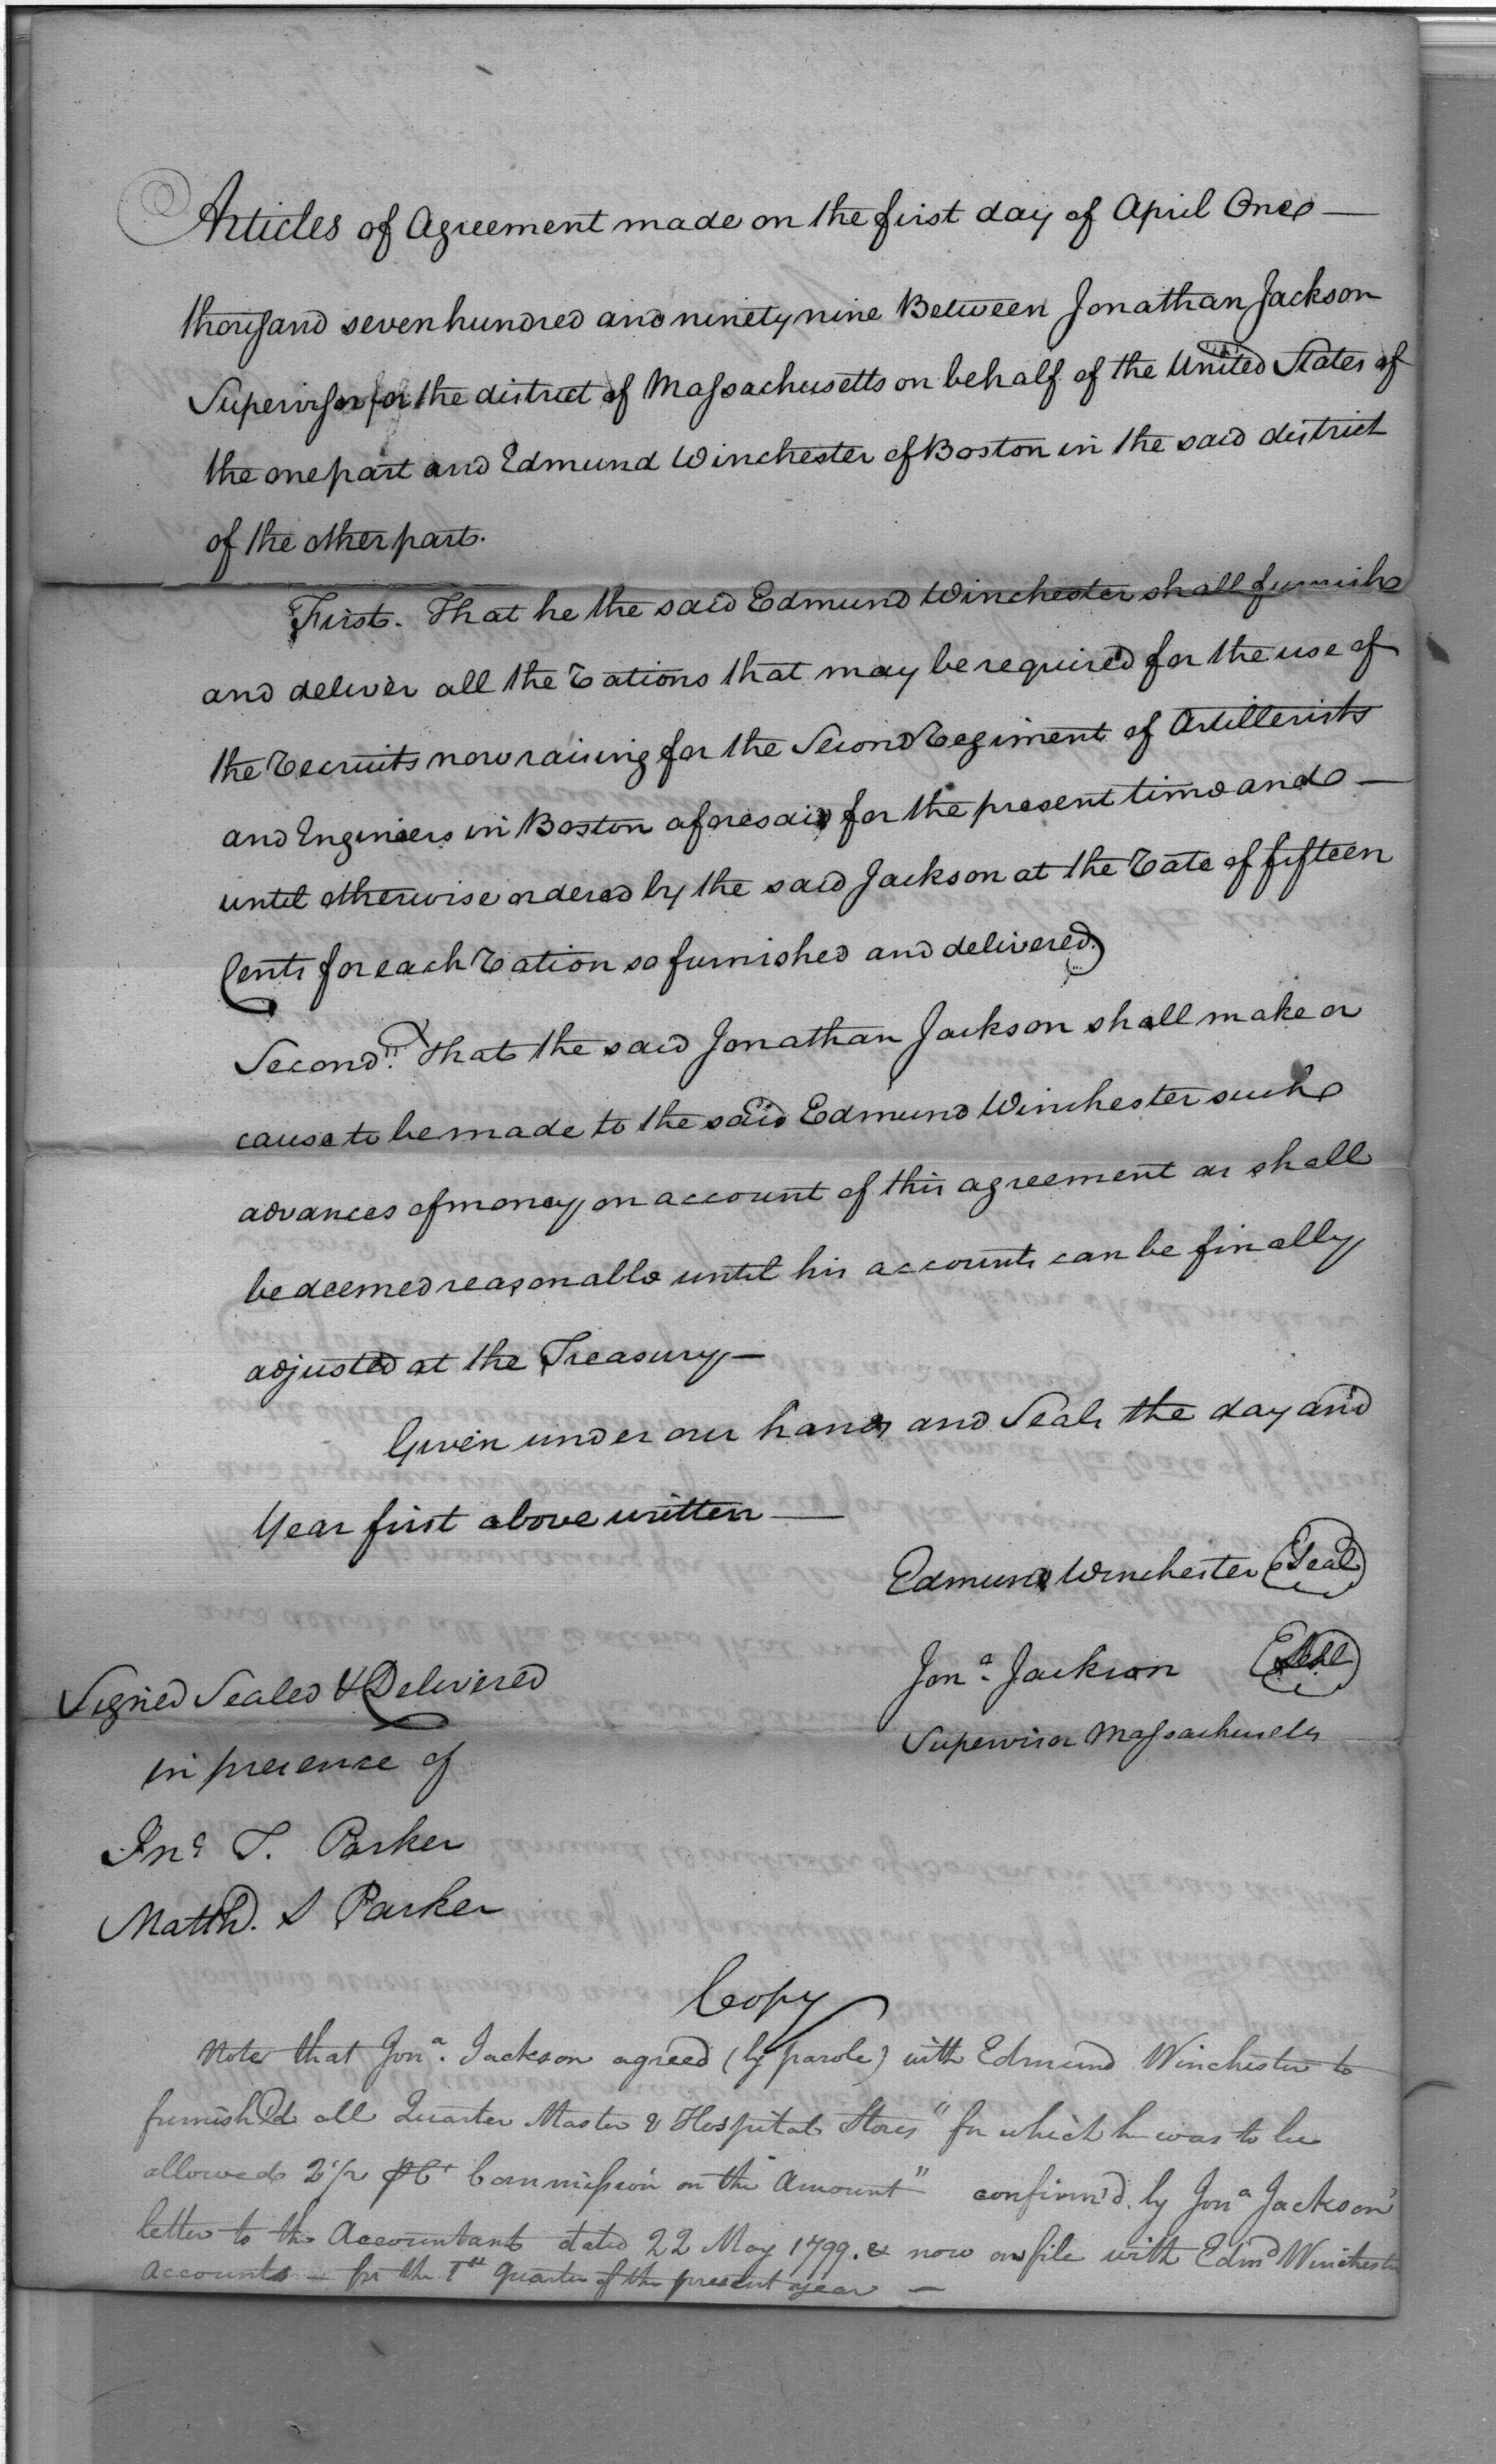 Articles of Agreement made on the first day of April One —
thousand seven hundred and ninety nine Between Jonathan Jackson
Supervisor for the district of Massachusetts on behalf of the United States of
the one part and Edmund Winchester of Boston in the said district
of the other part.
First. That he the said Edmund Winchester shall furnish
and deliver all the rations that may be required for the use of
the recruits now raising for the Second regiment of Artillerists
and Engineers in Boston aforesaid for the present time and —
until otherwise ordered by the said Jackson at the rate of fifteen
Cents for each ration so furnished and delivered.
Second. That the said Jonathan Jackson shall make or
cause to be made to the said Edmund Winchester such
advances of money on account of this agreement as shall
be deemed reasonable until his accounts can be finally
adjusted at the Treasury —
Given under our hands and Seals the day and
Year first above written —
Edmund Winchester Seal
Jona. Jackson Seal
Supervisor Massachusetts
Signed Sealed & Delivered
in presence of
Jno T. Parker
Matth. S Parker
Copy
Note that Jona. Jackson agreed (by parole) with Edmund Winchester to
furnish'd all Quarter Master & Hospital Stores "for which he was to be
allowed 2½ Ct Commission on the Amount" confirm'd by Jona Jackson's
letter to the Accountant dated 22 May 1799. & now on file with Edmd Winchester
Accounts — for the 1st Quarter of the present year —